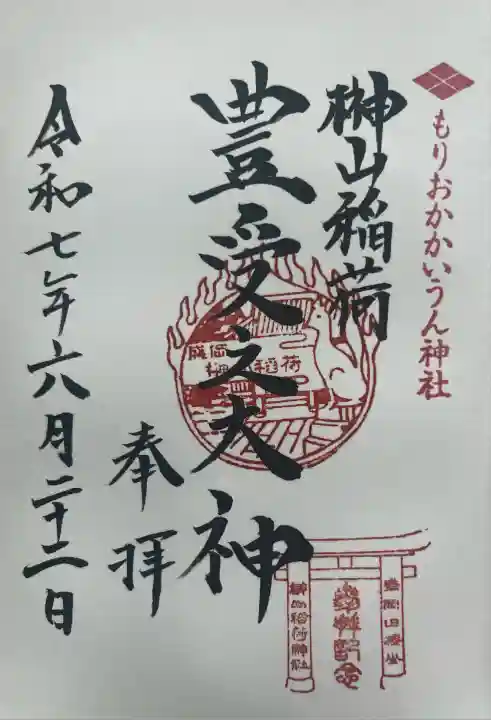 もりおかかいうん神社
榊山稲荷
豊受之大神
奉拝
令和七年六月二十二日
盛岡
榊山稲荷
榊山稲荷神社
参拝記念